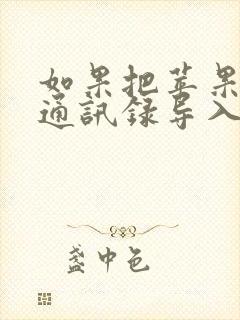 如果把苹果
通訊録导入
盏中色